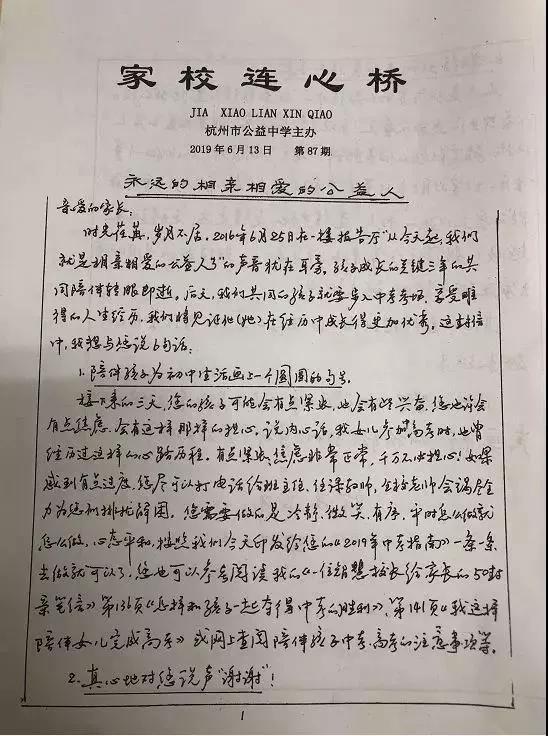 家校连心桥
JIA XIAO LIAN XIN QIAO
杭州市公益中学主办
2019年6月13日 第87期
永远的相亲相爱的公益人
亲爱的家长:
时光荏苒,岁月不居。2016年6月25日在一楼报告厅“从今天起,我们
就是相亲相爱的公益人了”的声音犹在耳旁。孩子成长的关键三年的共
同陪伴转眼即逝。后天,我们共同的孩子就要步入中考考场,享受难
得的人生经历,我们将见证他(她)在经历中成长得更加优秀。这封信
中,我想与您说6句话:
1.陪伴孩子为初中生活画上一个圆圆的句号。
接下来的三天,您的孩子可能会有点紧张,也会有些兴奋,您也许会
有点焦虑,会有这样那样的担心。说内心话,我女儿参加高考时,也曾
经历过这样的心路历程。有点紧张、焦虑非常正常,千万不必担心!如果
感到有点过度,您尽可以打电话给班主任、任课教师,全校老师会竭尽全
力为您们排忧解围。您需要做的是冷静、微笑、有序,平时怎么做就
怎么做,心态平和,按照我们今天印发给您的《2019年中考指南》一条一条
去做就可以了。您也可以参看阅读我的《一位智慧校长给家长的50封
亲笔信》第136页《怎样和孩子一起夺得中考的胜利》、第141页《我这样
陪伴女儿完成高考》或网上查阅陪伴孩子中考、高考的注意事项等。
2.真心地对您说声“谢谢”!
1